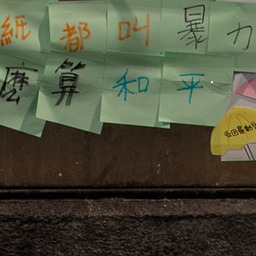 紙都叫暴力
麼算和平